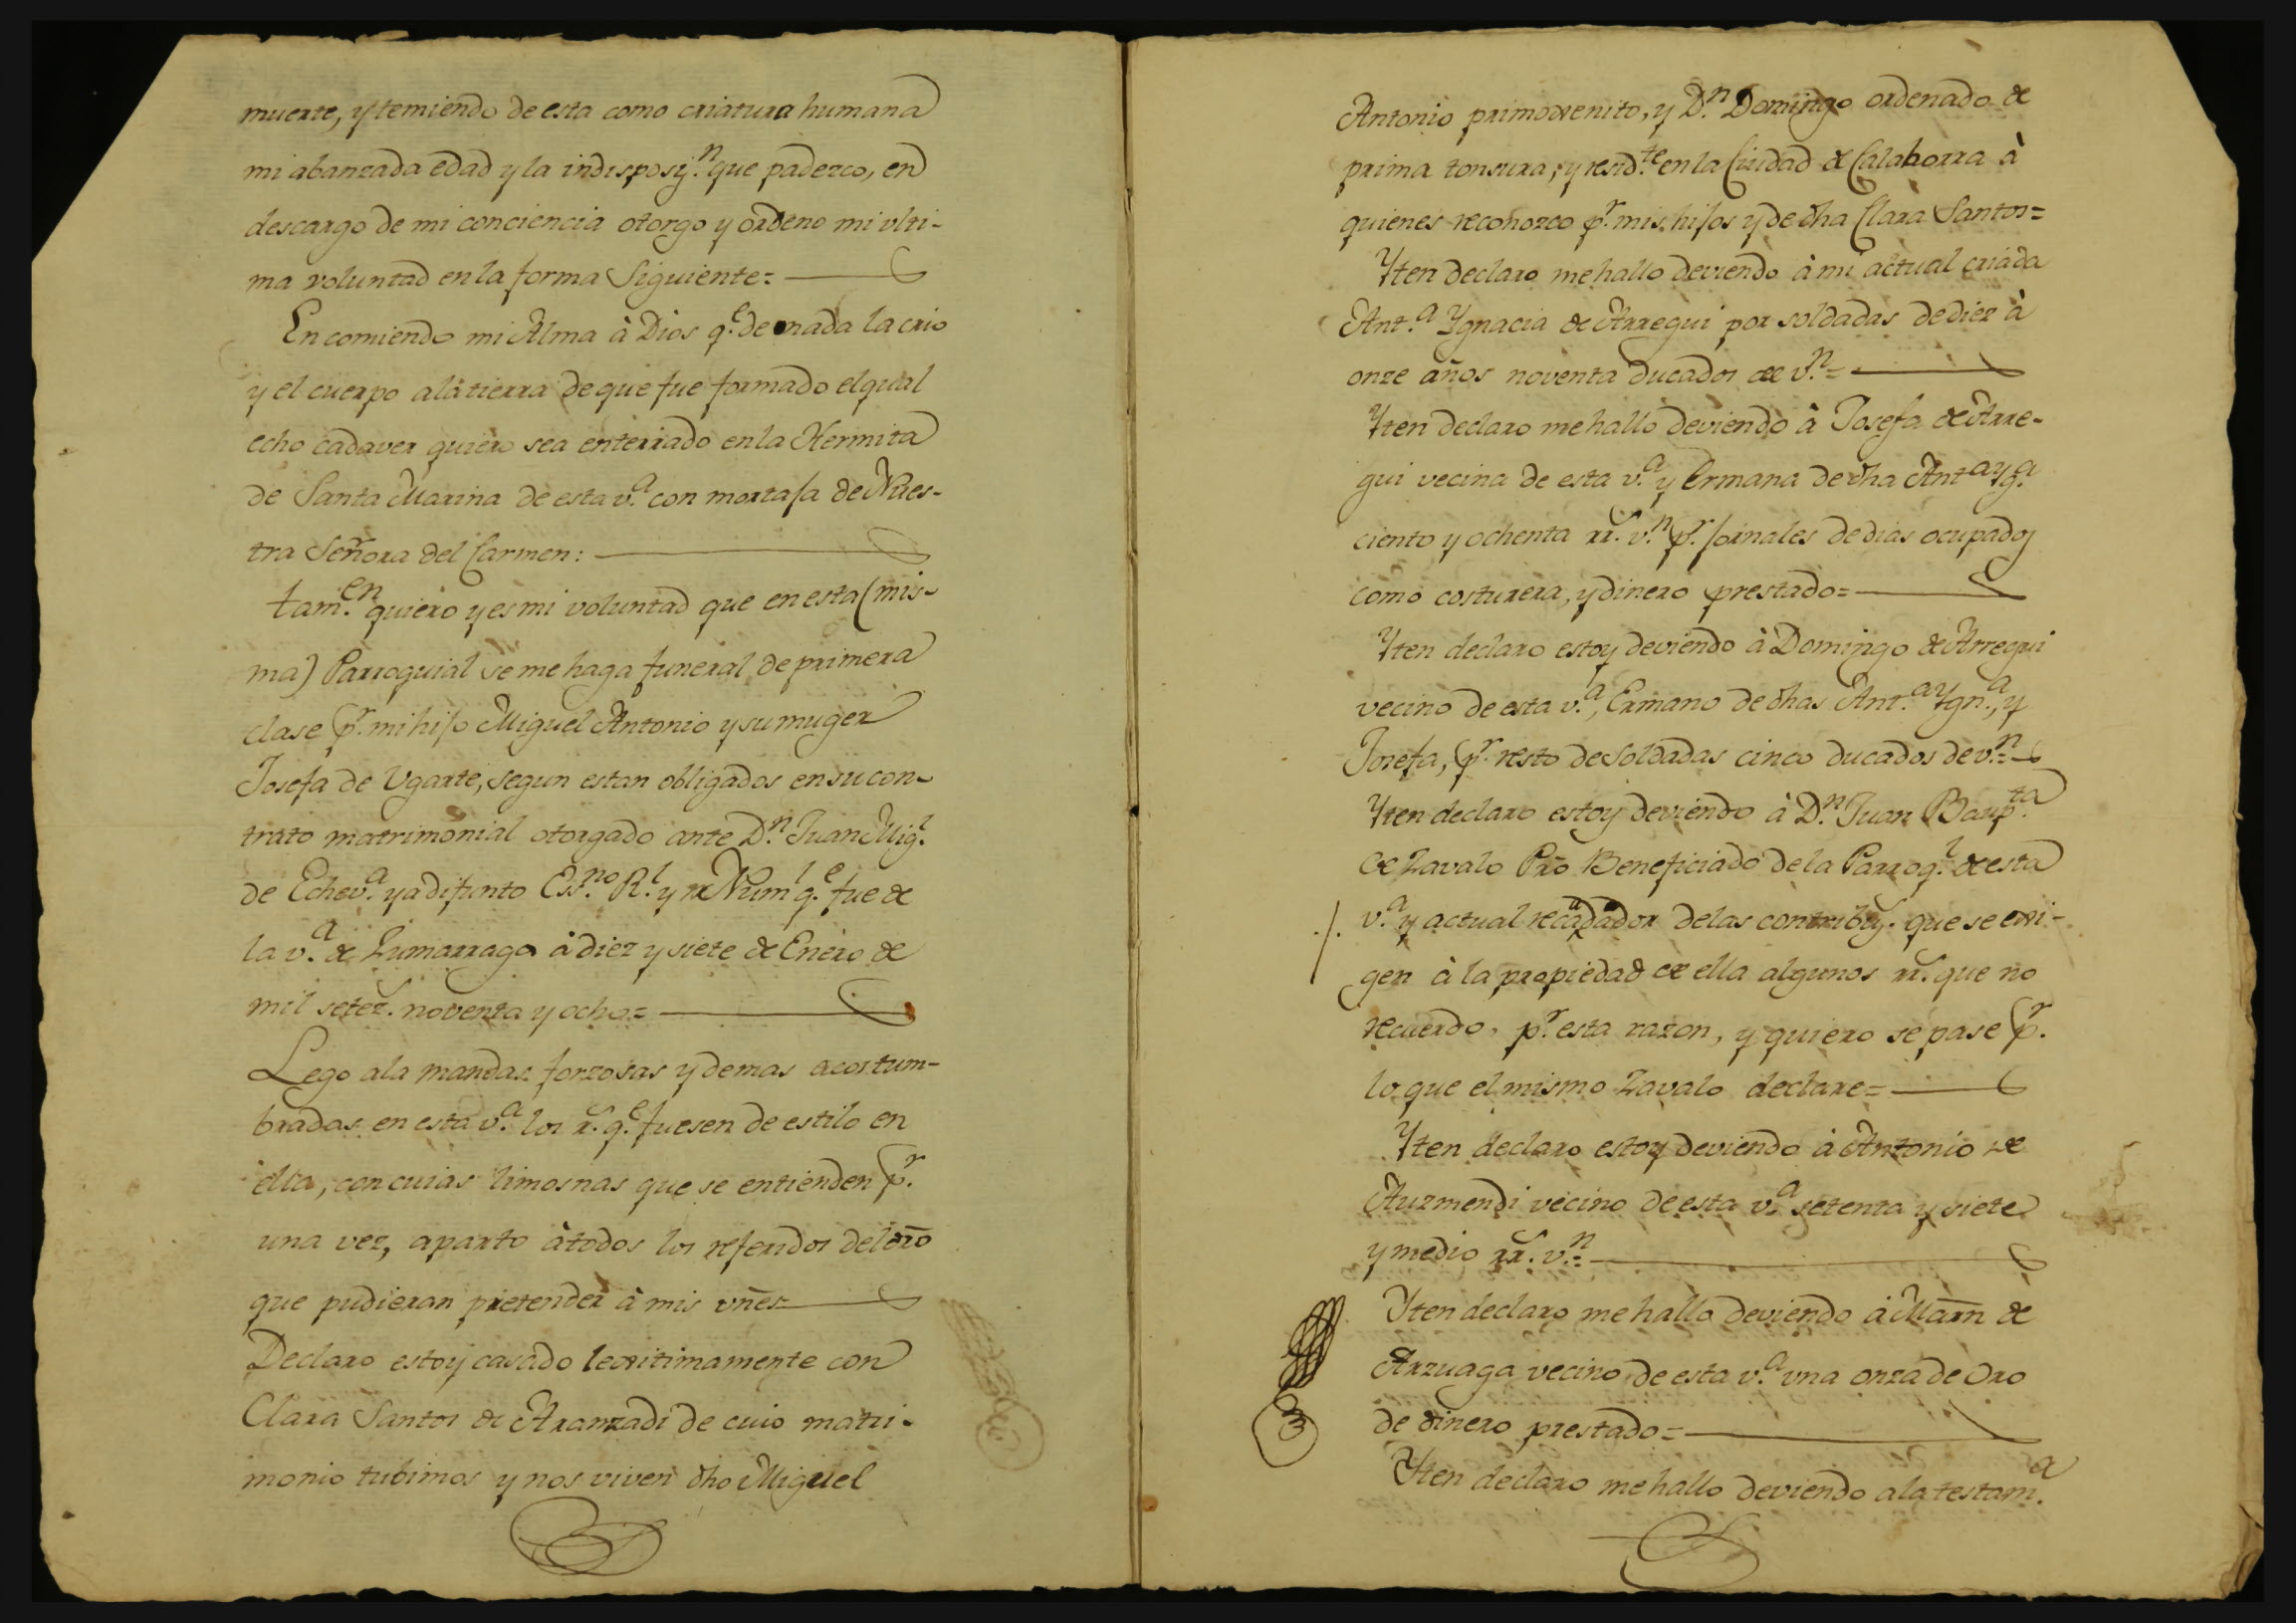 muerte, y temiendo de esta como criatura humana
mi abanzada edad y la indisposiz.n que padezco, en
descargo de mi conciencia otorgo y ordeno mi vlti-
ma voluntad en la forma Siguiente=
Encomiendo mi Alma à Dios q.e de nada la crio
y el cuerpo ala tierra de que fue formado elqual
echo cadaver quiero sea enterrado en la Hermita
de Santa Marina de esta v.a con mortaja de Nues-
tra Señora del Carmen:
tam.en quiero y es mi voluntad que en esta (mis-
ma) Parroquial se me haga funeral de primera
clase p.r mi hijo Miguel Antonio y su muger
Josefa de Vgarte, segun estan obligados en su con-
trato matrimonial otorgado ante D.n Juan Mig.l
de Echev.a ya difunto Es.no R.l y Num.l q.e fue de
la v.a de Zumarraga à diez y siete de Enero de
mil setez.s noventa y ocho=
Lego ala mandas forzosas y demas acostum-
bradas en esta v.a los r.s q.e fuesen de estilo en
ella, con cuias limosnas que se entienden p.r
una vez, aparto à todos los referidos del dro
que pudieran pretender à mis vñes=
Declaro estoy casado legitimamente con
Clara Santos de Aranzadi de cuio matri-
monio tubimos y nos viven dho Miguel
Antonio primogenito, y D.n Domingo ordenado de
prima tonsura, y resid.te en la Ciudad de Calahorra à
quienes reconozco p.r mis hijos y de dha Clara Santos=
Yten declaro me hallo deviendo à mi actual criada
Ant.a Ygnacia de Arregui por soldadas de diez à
onze años noventa ducados de v.n=
Yten declaro me hallo deviendo à Josefa de Arre-
gui vecina de esta v.a y Ermana de dha Ant.a Yg.a
ciento y ochenta rr.s v.n p.r jornales de dias ocupados
como costurera, y dinero prestado=
Yten declaro estoy deviendo à Domingo de Arregui
vecino de esta v.a, Ermano de dhas Ant.a Ygn.a, y
Josefa, p.r resto de Soldadas cinco ducados de v.n=
Yten declaro estoy deviendo à D.n Juan Baup.ta
de Zavalo Pro Beneficiado de la Parroq.l de esta
v.a y actual recaudador delas contribuz.s que se exi-
gen à la propiedad de ella algunos rr.s que no
recuerdo, p.r esta razon, y quiero se pase p.r
lo que el mismo Zavalo declare=
Yten declaro estoy deviendo à Antonio de
Auzmendi vecino de esta v.a setenta y siete
y medio rr.s v.n=
Yten declaro me hallo deviendo à Marn de
Arzuaga vecino de esta v.a vna onza de Oro
de dinero prestado=
Yten declaro me hallo deviendo a la testam.a